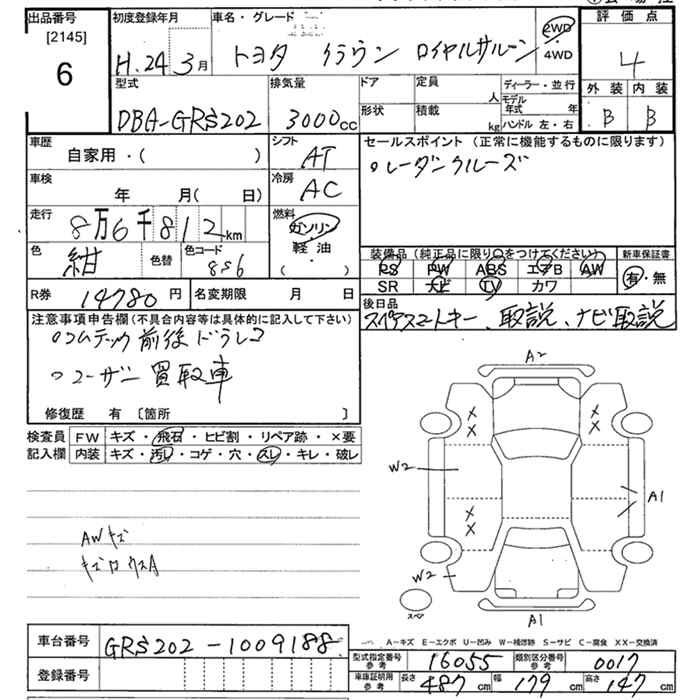 出品番号 初度登録年月 車名・グレード 評価点
[2145]
6
H.24 3月 トヨタ クラウン ロイヤルサルーン 2WD・4WD 4
型式 排気量 ドア 定員 人 ディーラー・並行 外装 内装
DBA-GRS202 3000cc 形状 積載 kg モデル年式 年 B B
ハンドル 左・右
車歴 シフト セールスポイント(正常に機能するものに限ります)
自家用・( ) AT ○レーダークルーズ
車検 冷房
年 月( 日) AC
走行 燃料
8万6千812km ガソリン
色 色替 色コード 軽油・ 装備品(純正品に限り○をつけてください) 新車保証書
紺 8S6 ( ) PS PW ABS エアB AW 有・無
SR ナビ TV カワ
R券 14780円 名変期限 月 日 後日品
スペアスマートキー、取説、ナビ取説
注意事項申告欄(不具合内容等は具体的に記入して下さい)
○コムテック前後ドラレコ
○ユーザー買取車
修復歴 有 〔箇所 〕
検査員 FW キズ・飛石・ヒビ割・リペア跡・×要
記入欄 内装 キズ・汚レ・コゲ・穴・スレ・キレ・破レ
A2
W2
A1
AWキズ
W2
スペア
A1
車台番号 GRS202-1009188
A-キズ E-エクボ U-凹み W-補修跡 S-サビ C-腐食 XX-交換済
登録番号 型式指定番号 参考 16055 類別区分番号 参考 0017
車庫証明用 参考 長さ 487cm 幅 179cm 高さ 147cm